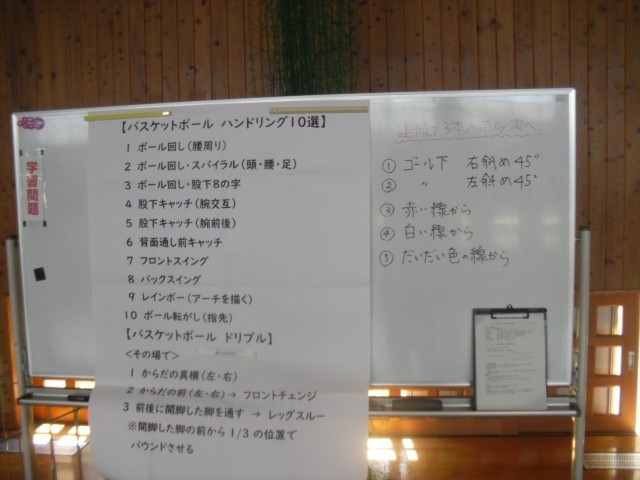 学習問題
【バスケットボール ハンドリング10選】
1 ボール回し(腰周り)
2 ボール回し・スパイラル(頭・腰・足)
3 ボール回し・股下8の字
4 股下キャッチ(腕交互)
5 股下キャッチ(腕前後)
6 背面通し前キャッチ
7 フロントスイング
8 バックスイング
9 レインボー(アーチを描く)
10 ボール転がし(指先)
【バスケットボール ドリブル】
<その場で>
1 からだの真横(左・右)
2 からだの前(左・右)→ フロントチェンジ
3 前後に開脚した脚を通す → レッグスルー
※開脚した脚の前から 1/3 の位置で
バウンドさせる
次へ
① ゴール下 右斜め45°
② 〃 左斜め45°
③ 赤い線から
④ 白い線から
⑤ だいだい色の線から